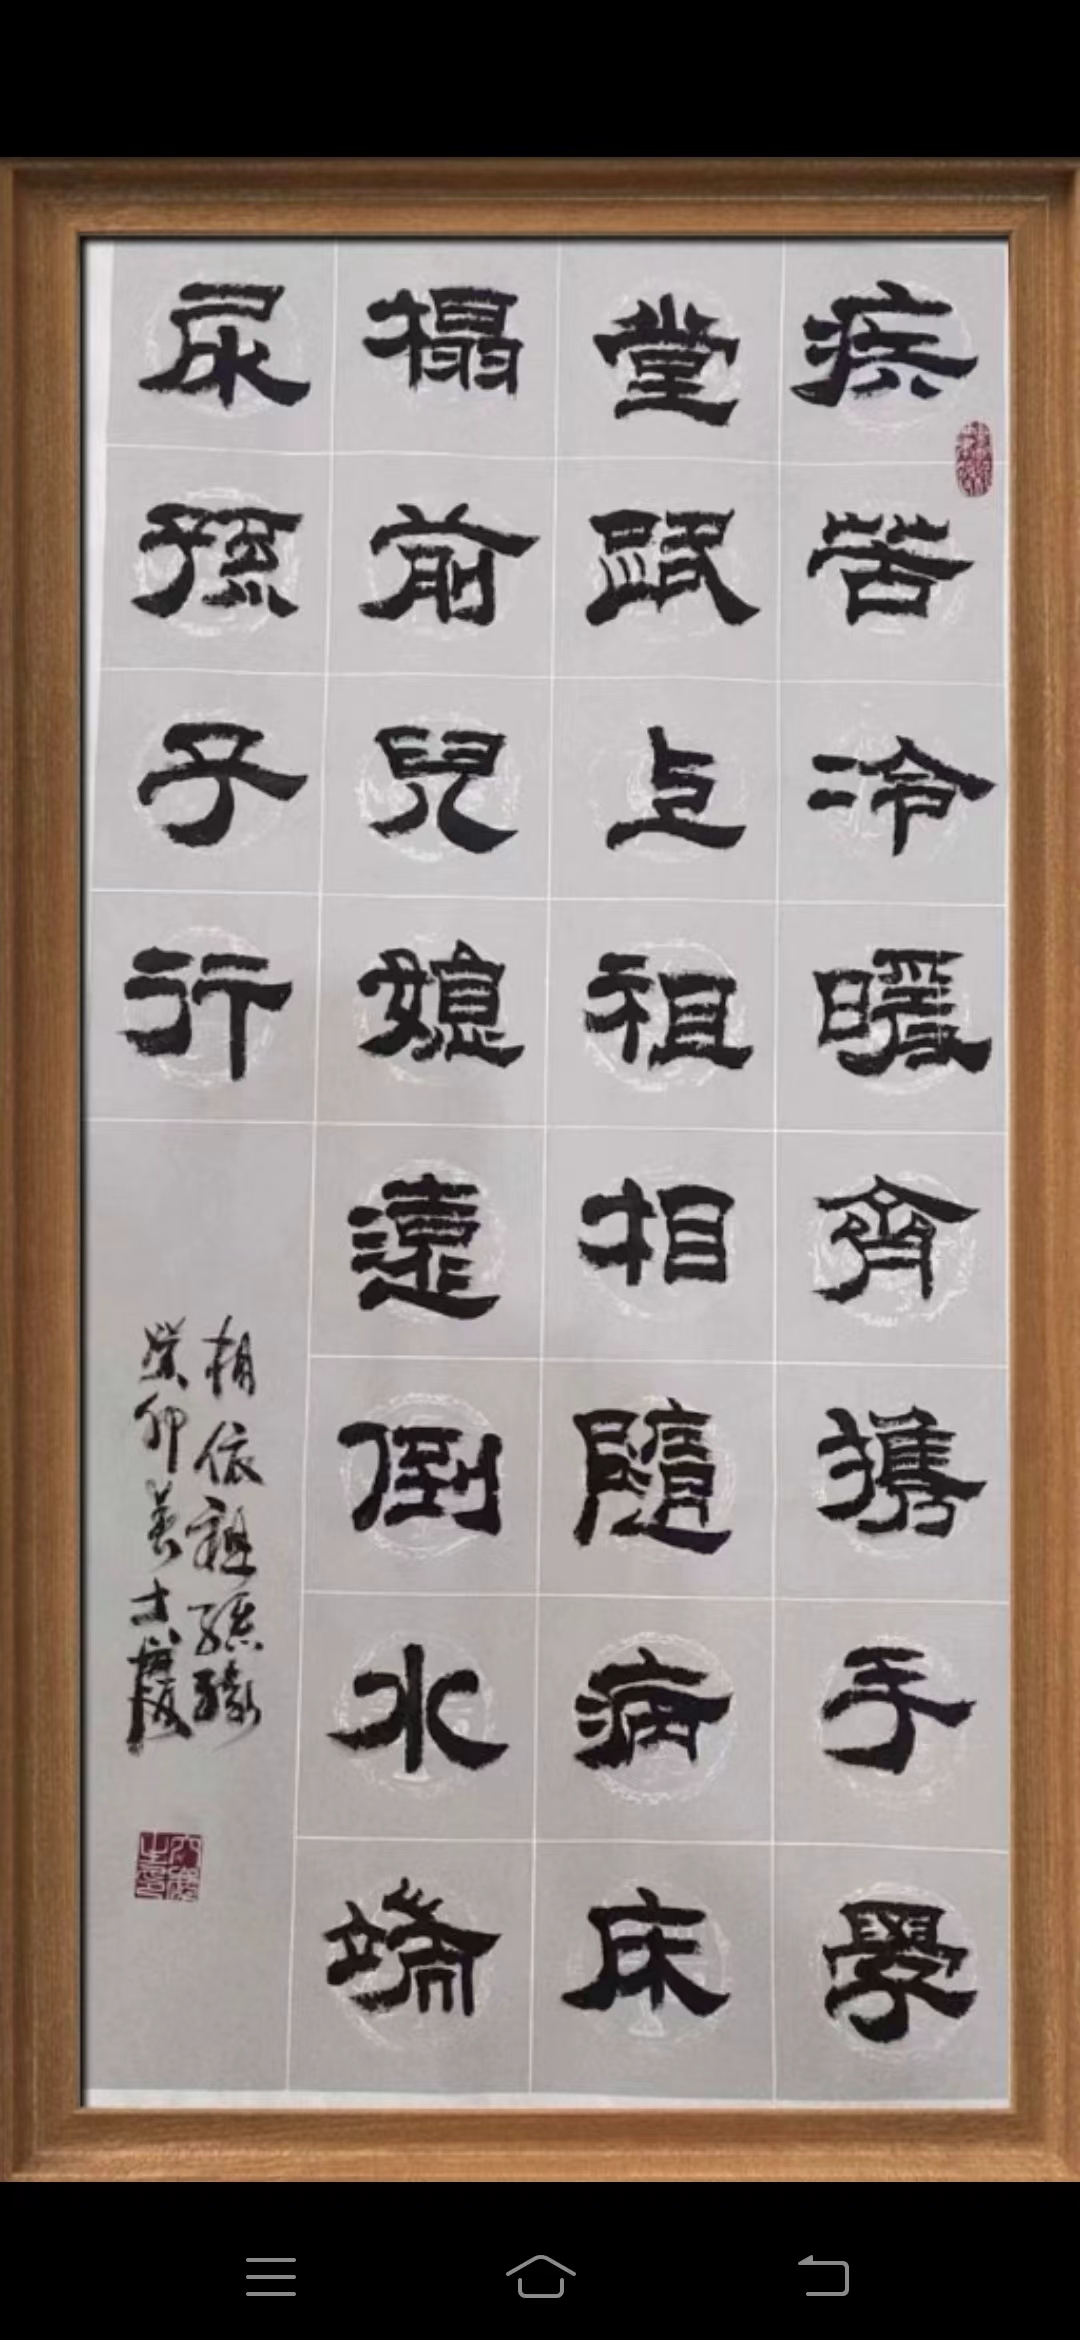 疾苦冷暖齊携手學
堂路上祖相隨病床
榻前兒媳遠倒水端
尿孫子行
相依祖孫緣
癸卯